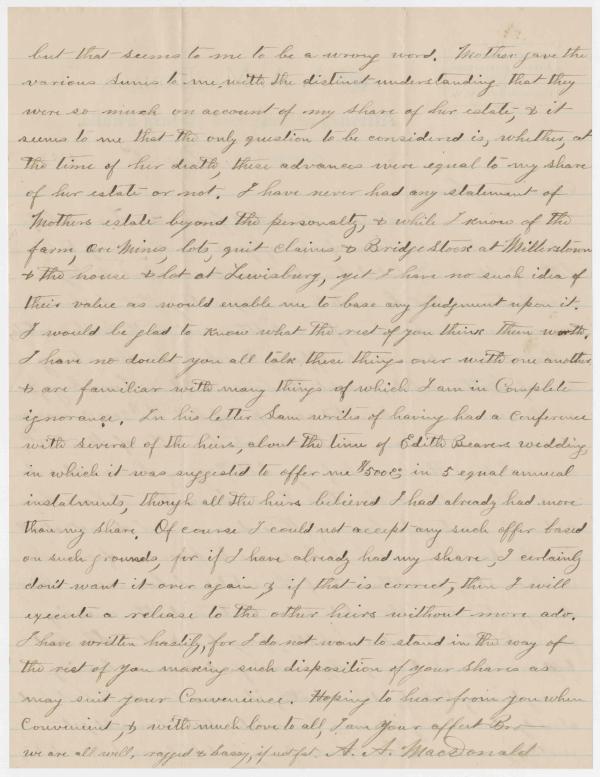 but that seems to me to be a wrong word. Mother gave the
various sums to me with the distinct understanding that they
were so much on account of my share of her estate, & it
seems to me that the only question to be considered is, whether, at
the time of her death, these advances were equal to my share
of her estate or not. I have never had any statement of
Mothers estate beyond the personalty, & while I know of the
farm, Ore Mines, lots, quit claims, & Bridge Stock at Millerstown
& the house & lot at Lewisburg, yet I have no such idea of
their value as would enable me to base any judgment upon it.
I would be glad to know what the rest of you think them worth.
I have no doubt you all talk these things over with one another
& are familiar with many things of which I am in Complete
ignorance. In his letter Sam writes of having had a Conference
with several of the heirs, about the time of Edith Beavers wedding,
in which it was suggested to offer me in 5 equal annual
instalments, though all the heirs believed I had already had more
than my share. Of course I could not accept any such offer based
on such grounds, for if I have already had my share, I certainly
don't want it over again, & if that is correct, then I will
execute a release to the other heirs without more ado.
I have written hastily, for I do not want to stand in the way of
the rest of you making such disposition of your shares as
may suit your Convenience. Hoping to hear from you when
Convenient, & with much love to all, I am your affect Bro
we are all well, ragged & sassy, if not fat. A. A. MacDonald